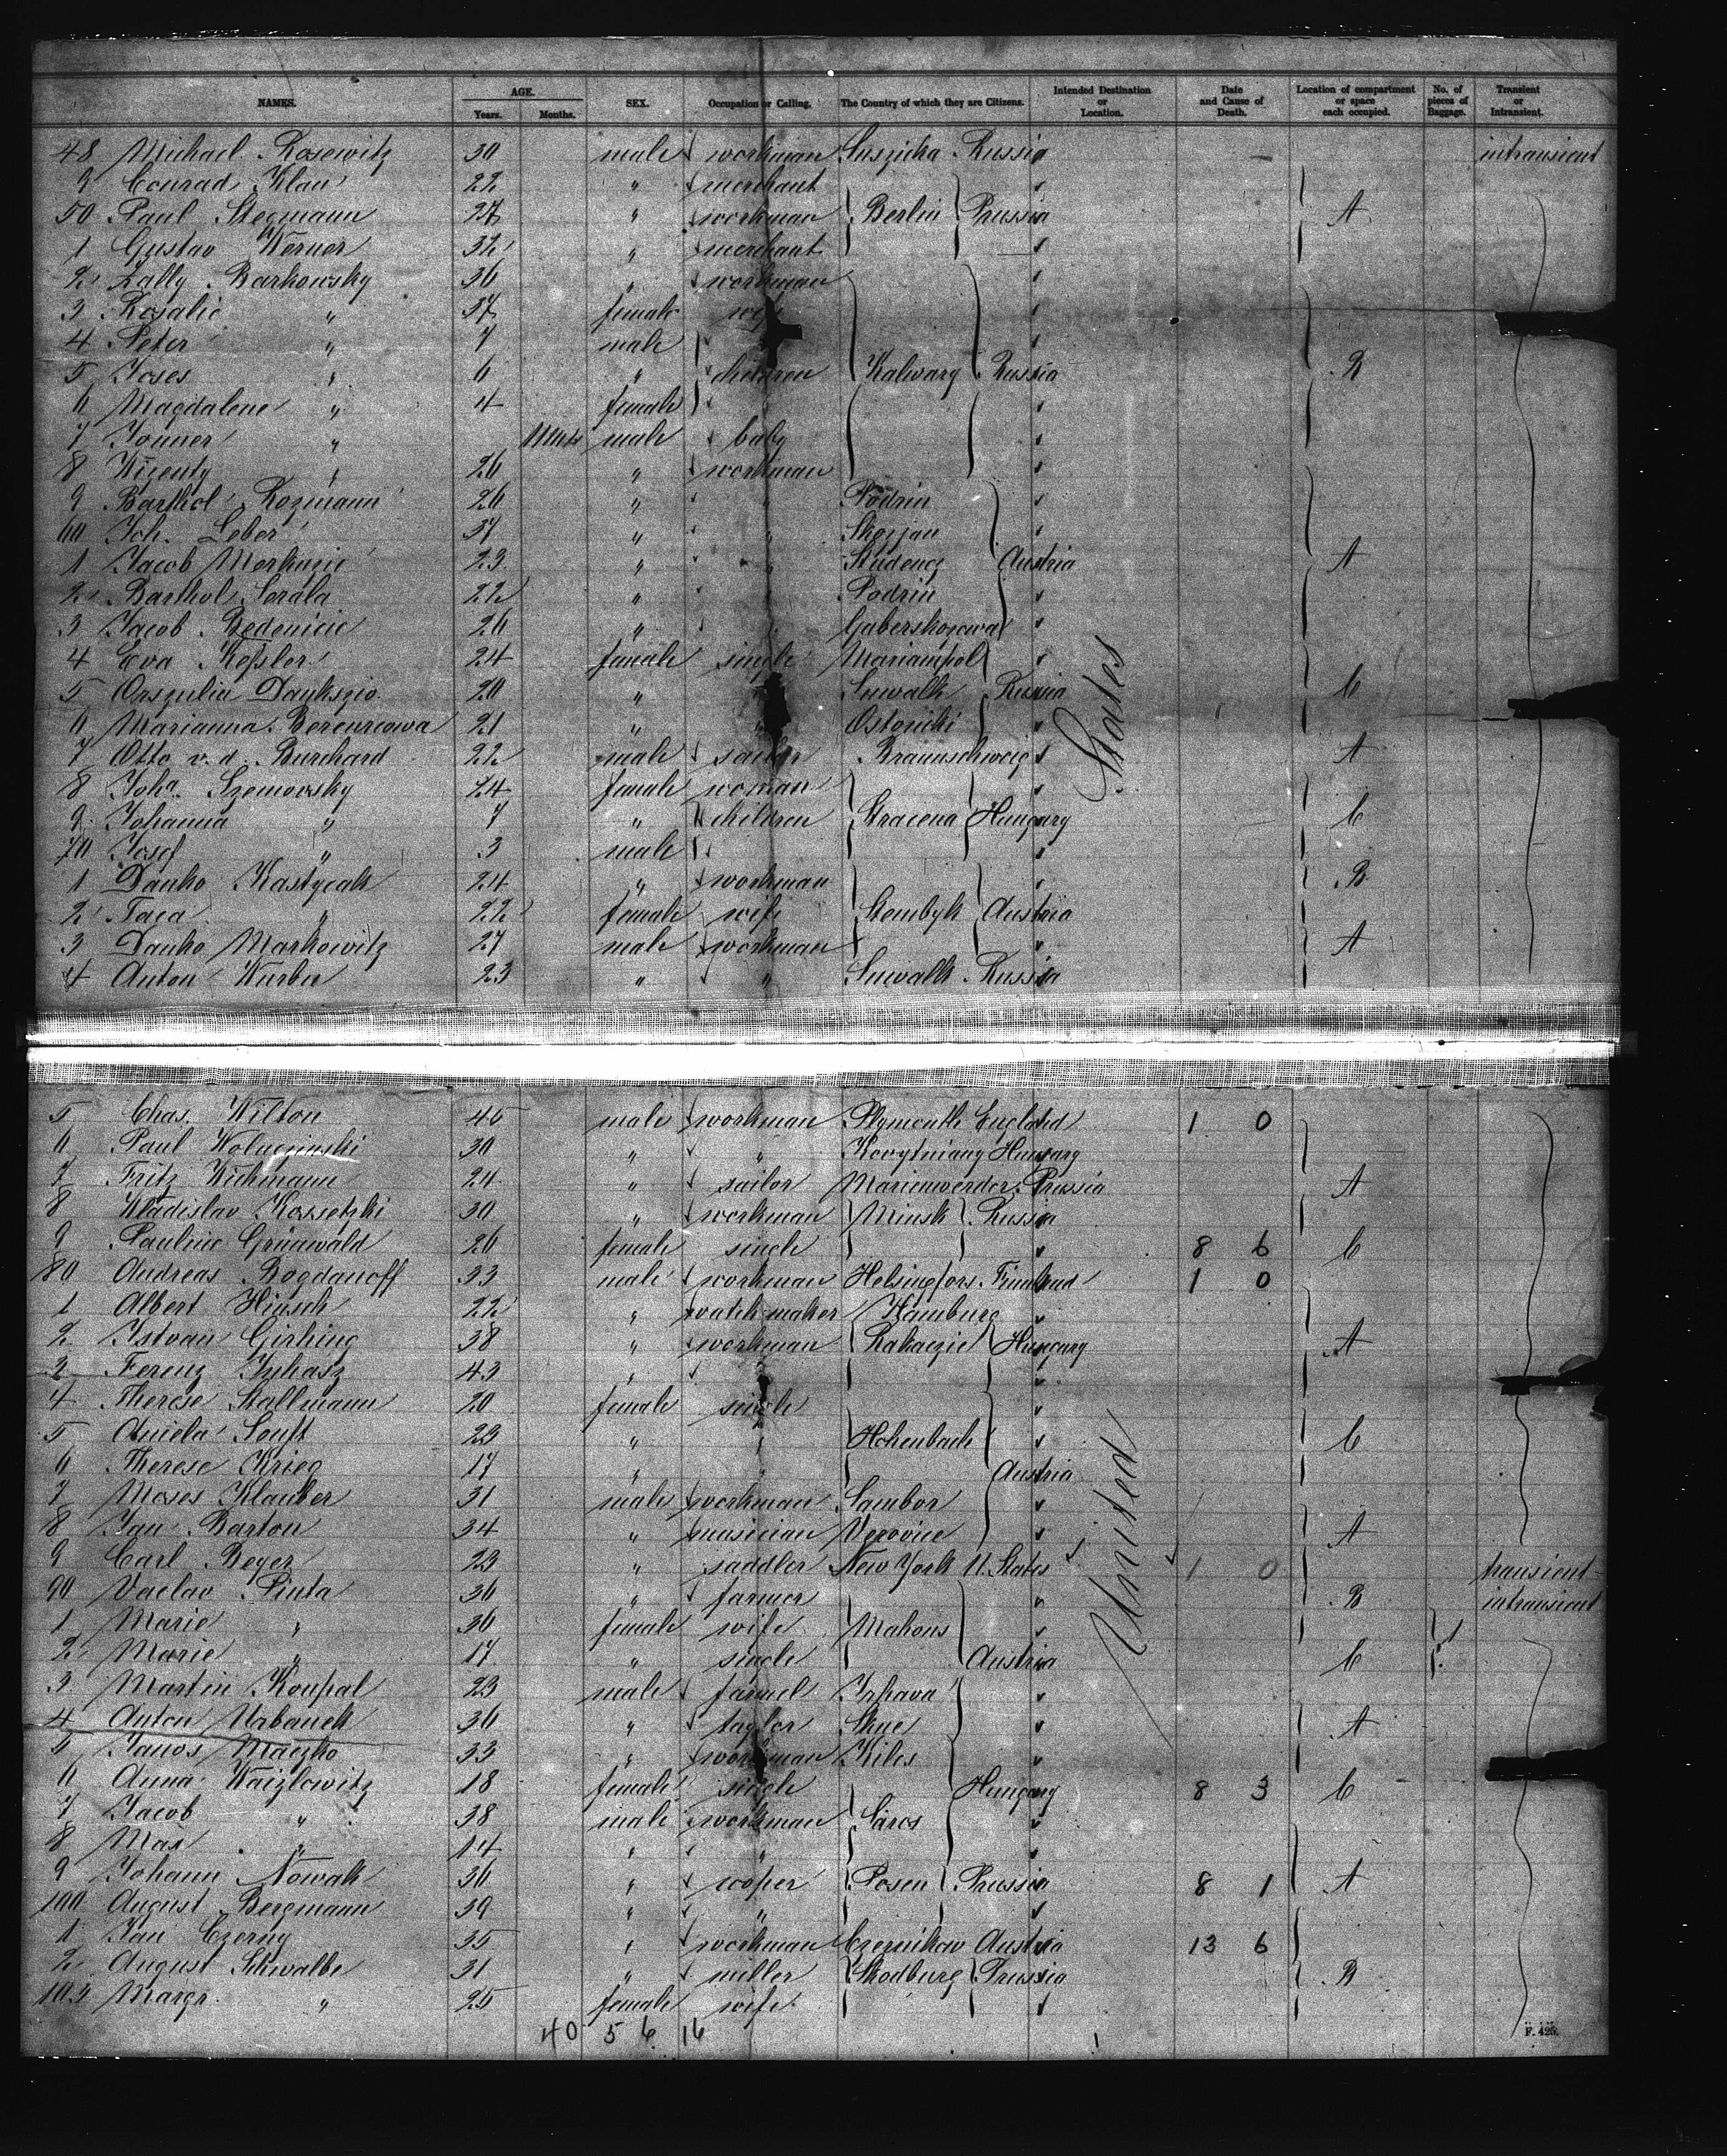 NAMES. AGE. Years. Months. SEX. Occupation or Calling. The Country of which they are Citizens. Intended Destination or Location. Date and Cause of Death. Location of compartment or space each occupied. No. of pieces of Baggage. Transient or Intransient.
48 Michael Rosewitz 30 male workman Suszicka Russia intransient
9 Conrad Klau 22 " merchant
50 Paul Stegmann 27 " workman Berlin Prussia A
1 Gustav Werner 32 " merchant
2 Zally Barkowsky 36 " workman
3 Rosalie " 37 female wife
4 Peter " 7 male
5 Joses " 6 " children Kalwary Russia B
6 Magdalene " 4 female
7 Jonner " male baby
8 Wizenty " 26 " workman
9 Barthol Rozmann 26 " " Podrin
60 Joh. Leber 37 " " Skozjan
1 Jacob Merkusic 23 " " Studencz Austria A
2 Barthol Serala 22 " Podrin
3 Jacob Bedenicic 26 " Gaberskozewa
4 Eva Kessler 24 female single Mariampol
5 Orszulia Daukszio 20 " Suwalk Russia C
6 Marianna Berenreowa 21 " " Ostoricki
7 Otto v. d. Burchard 22 male sailor Braunschweig A
8 Joha Szemowsky 24 female woman
9 Johanna " 7 " children Stracena Hungary C
70 Josef " 3 male
1 Danko Kastycak 24 " workman B
2 Taca " 22 female wife Stembyk Austria
3 Danko Markowitz 27 male workman A
4 Anton Wurba 23 " " Suwalk Russia
States
5 Chas. Wilton 45 male workman Plymouth England 1 0
6 Paul Wolucjinski 30 " " Korytniany Hungary
7 Fritz Wichmann 24 " sailor Marienwerder Prussia A
8 Wladislav Kossetzki 30 " workman Minsk Russia
9 Pauline Grünwald 26 female single 8 6 C
80 Andreas Bogdanoff 33 male workman Helsingfors Finnland 1 0
1 Albert Hinsch 22 " watchmaker Hamburg
2 Istvan Girhing 38 " workman Rakaczie Hungary A
3 Ferenz Juhasz 43 "
4 Therese Stallmann 20 female single
5 Aniela Senft 23 " " Hohenbach C
6 Therese Krieg 17 " " Austria
7 Moses Klauber 31 male workman Sambor
8 Jan Barton 34 " musician Verovice A
9 Carl Beyer 23 " saddler New York U. States 1 0 transient
90 Vaclav Pinta 36 " farmer B intransient
1 Marie " 36 female wife Mahous
2 Marie " 17 " single Austria C
3 Martin Koupal 23 male farmer Inpava
4 Anton Urbanek 30 " taylor Skye A
5 Janos Maczko 33 " workman Kiles
6 Anna Waizlowitz 18 female single Hungary 8 3 C
7 Jacob " 38 male workman Saros
8 Max " 14 " "
9 Johann Nowak 36 " cooper Posen Prussia 8 1 A
100 August Bergmann 39 " "
1 Jan Czerny 35 " workman Czernikau Austria 13 6
2 August Schwalbe 31 " miller Skodburg Prussia B
103 Margr. " 25 female wife
United
40 5 6 16 1
F. 425.